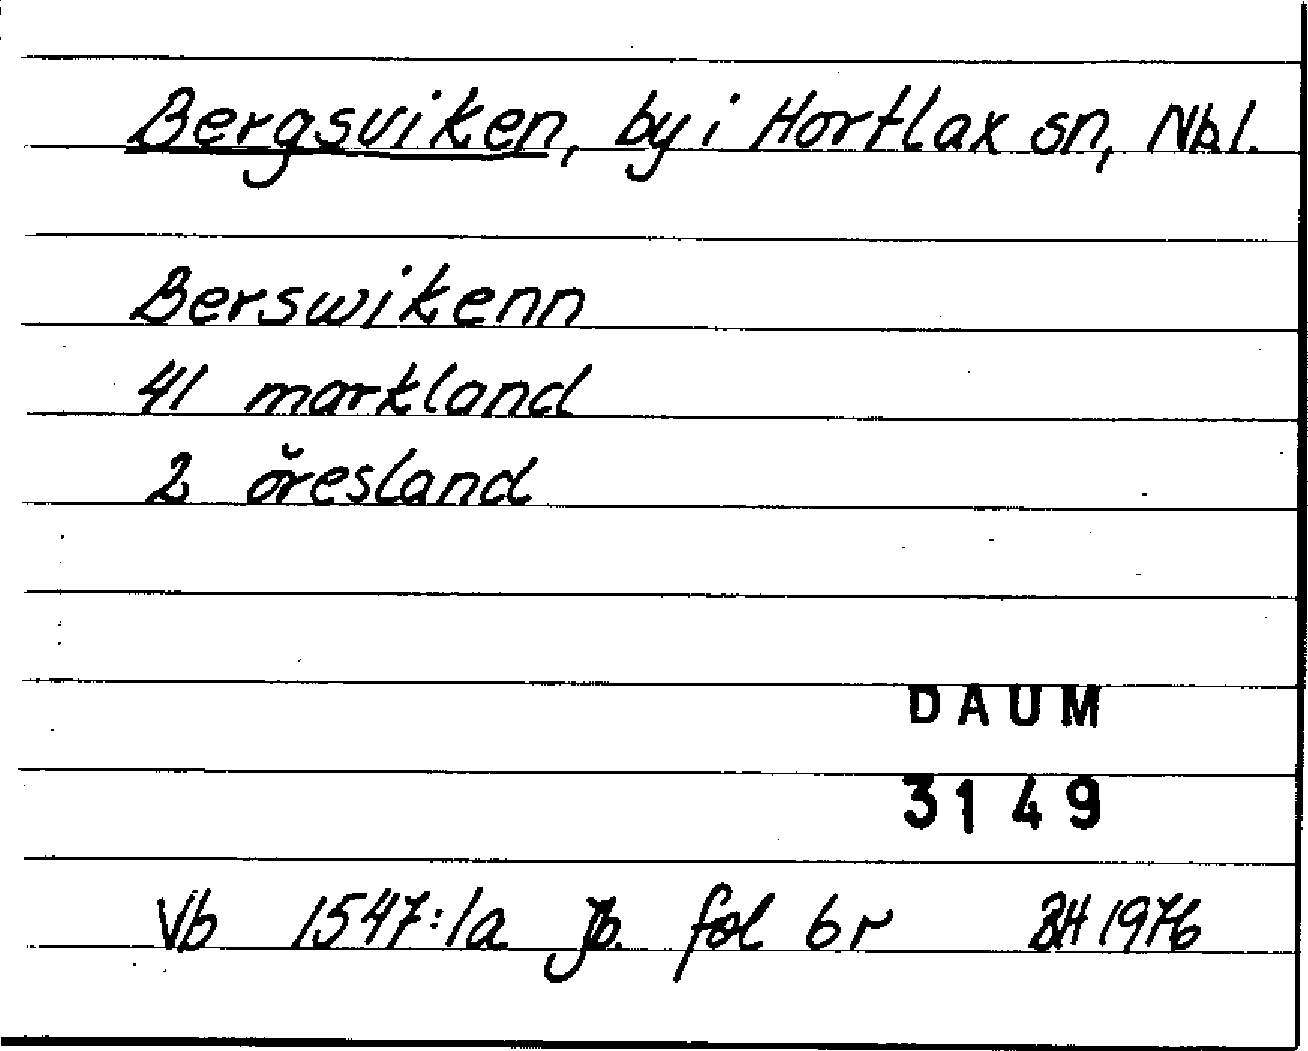 Bergsviken, by i Hortlax sn, Nbl.
Berswikenn
41 markland
2 öresland
DAUM
3149
Vb 1547:1a Jb. fol 6r BH 1976